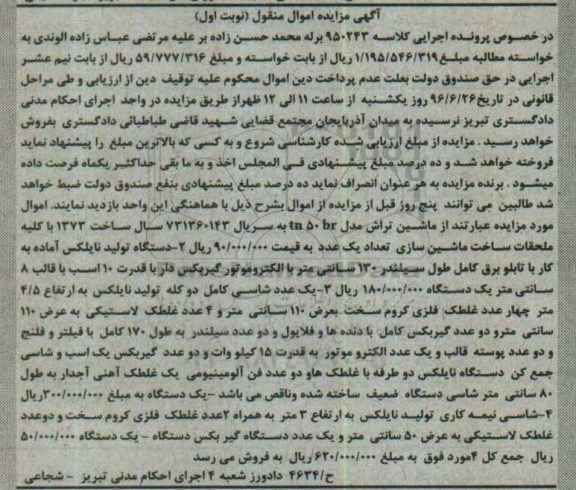 آگهی مزایده اموال منقول (نوبت اول)
در خصوص پرونده اجرایی کلاسه ۹۵۰۲۴۳ برله محمد حسن زاده بر علیه مرتضی عباس زاده الوندی به
خواسته مطالبه مبلغ ۱/۱۹۵/۵۴۶/۳۱۹ ریال از بابت خواسته و مبلغ ۵۹/۷۷۷/۳۱۶ ریال از بابت نیم عشر
اجرایی در حق صندوق دولت بعلت عدم پرداخت دین اموال محکوم علیه توقیف دین از ارزیابی و طی مراحل
قانونی در تاریخ ۹۶/۶/۲۶ روز یکشنبه از ساعت ۱۱ الی ۱۲ ظهر از طریق مزایده در واحد اجرای احکام مدنی
دادگستری تبریز نرسیده به میدان آذربایجان مجتمع قضایی شهید قاضی طباطبائی دادگستری بفروش
خواهد رسید. مزایده از مبلغ ارزیابی شده کارشناسی شروع و به کسی که بالاترین مبلغ را پیشنهاد نماید
فروخته خواهد شد و ده درصد مبلغ پیشنهادی فی المجلس اخذ و به ما بقی حداکثر یکماه فرصت داده
میشود. برنده مزایده به هر عنوان انصراف نماید ده درصد مبلغ پیشنهادی بنفع صندوق دولت ضبط خواهد
شد طالبین می توانند پنج روز قبل از مزایده از اموال بشرح ذیل با هماهنگی این واحد بازدید نمایند. اموال
مورد مزایده عبارتند از ماشین تراش مدل tn ۵۰ br به سریال ۷۳۱۳۶۰۱۴۳ سال ساخت ۱۳۷۳ با کلیه
ملحقات ساخت ماشین سازی تعداد یک عدد به قیمت ۹۰/۰۰۰/۰۰۰ ریال ۲-دستگاه تولید نایلکس آماده به
کار با تابلو برق کامل طول سیلندر ۱۳۰ سانتی متر با الکتروموتور گیربکس دار با قدرت ۱۰ اسب با قالب ۸
سانتی متر یک دستگاه ۱۸۰/۰۰۰/۰۰۰ ریال ۳-یک عدد شاسی کامل دو کله تولید نایلکس به ارتفاع ۴/۵
متر چهار عدد غلطک فلزی کروم سخت بعرض ۱۱۰ سانتی متر و ۴ عدد غلطک لاستیکی به عرض ۱۱۰
سانتی مترو دو عدد گیربکس کامل با دنده ها و فلایول و دو عدد سیلندر به طول ۱۷۰ کامل با فیلتر و فلنج
و دو عدد پوسته قالب و یک عدد الکترو موتور به قدرت ۱۵ کیلو وات و دو عدد گیربکس یک اسب و شاسی
جمع کن دستگاه نایلکس دو طرفه با غلطک هاو دو عدد فن آلومینیومی یک غلطک آهنی آجدار به طول
۸۰ سانتی متر شاسی دستگاه ضعیف ساخته شده وناقص می باشد -یک دستگاه به مبلغ ۳۰۰/۰۰۰/۰۰۰ریال
۴-شاسی نیمه کاری تولید نایلکس به ارتفاع ۳ متر به همراه ۲عدد غلطک فلزی کروم سخت و دوعدد
غلطک لاستیکی به عرض ۵۰ سانتی متر و یک عدد دستگاه گیر بکس دستگاه - یک دستگاه ۵۰/۰۰۰/۰۰۰
ریال جمع کل ۴مورد فوق به مبلغ ۶۲۰/۰۰۰/۰۰۰ ریال به فروش می رسد
ح/۴۶۳۴ دادورز شعبه ۴ اجرای احکام مدنی تبریز - شجاعی